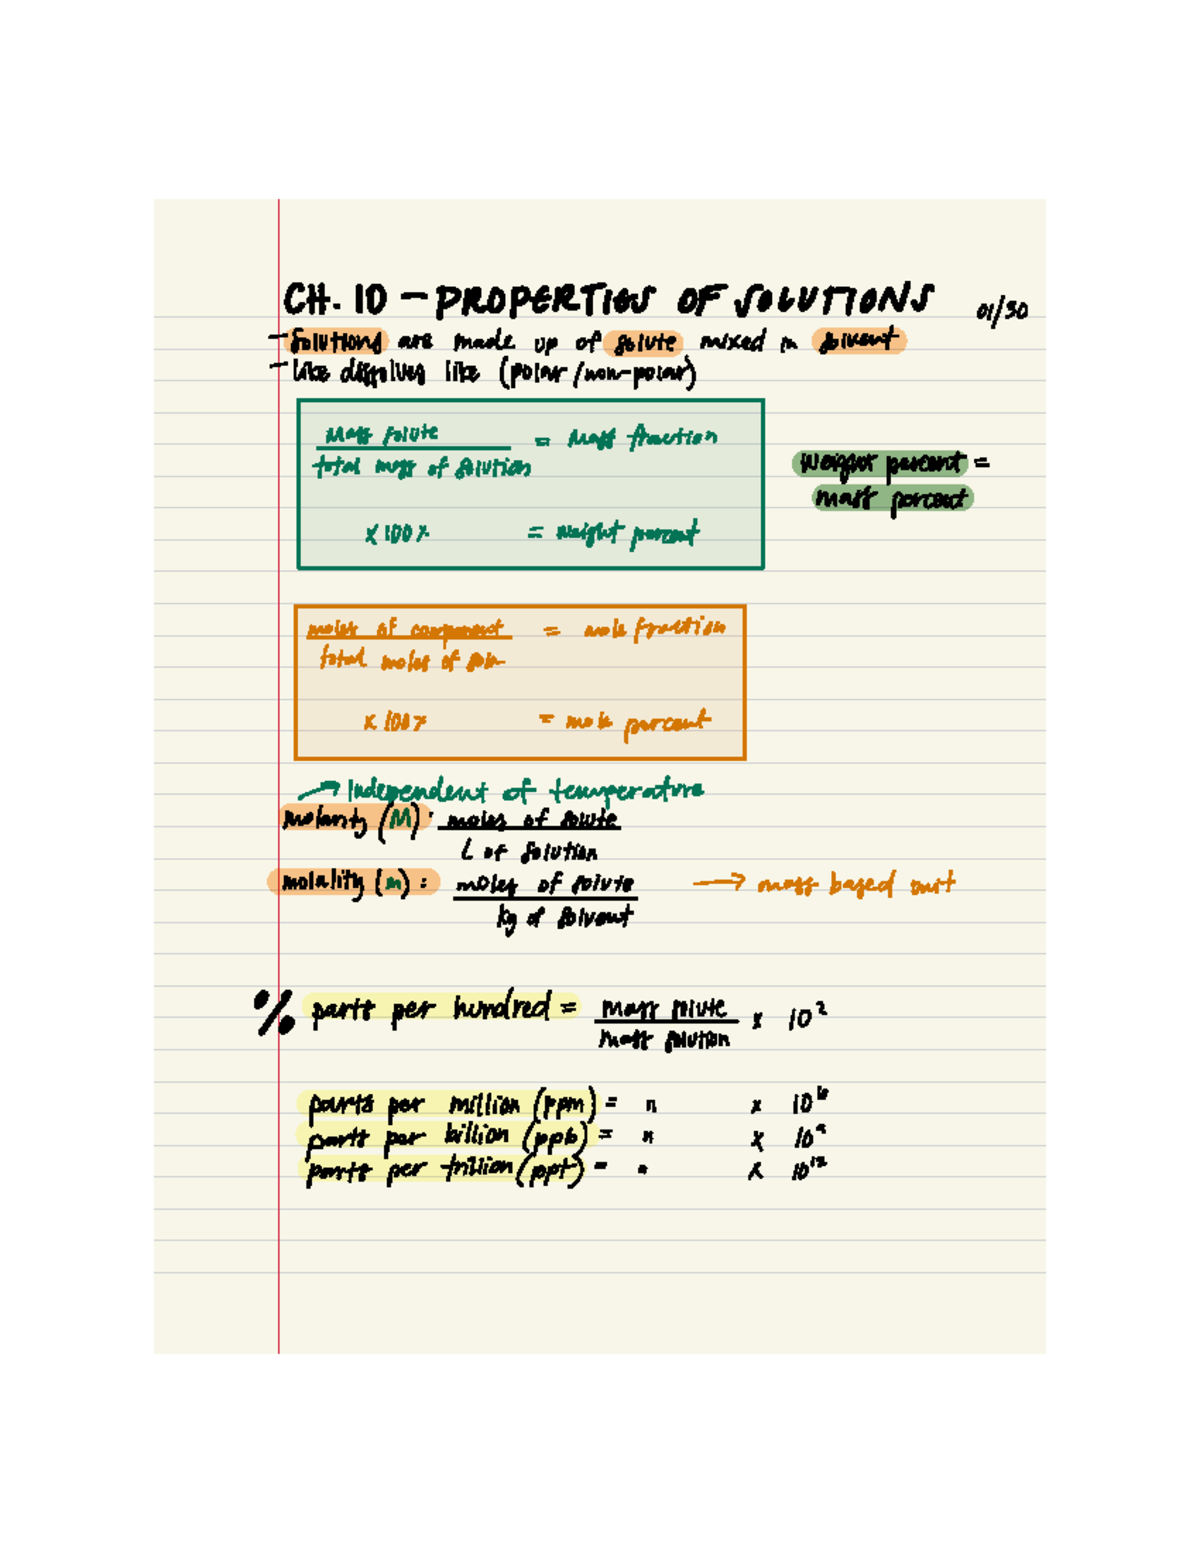 CH. 10 – PROPERTIES OF SOLUTIONS 01/30
- Solutions are made up of solute mixed in solvent
- like dissolves like (polar/non-polar)
mass solute = mass fraction
total mass of solution
x 100% = weight percent
weight percent =
mass percent
moles of component = mole fraction
total moles of soln
x 100% = mole percent
→ Independent of temperature
molarity (M): moles of solute
L of solution
molality (m): moles of solute → mass based unit
kg of solvent
% parts per hundred = mass solute x 10²
mass solution
parts per million (ppm) = " x 10⁶
parts per billion (ppb) = " x 10⁹
parts per trillion (ppt) = " x 10¹²